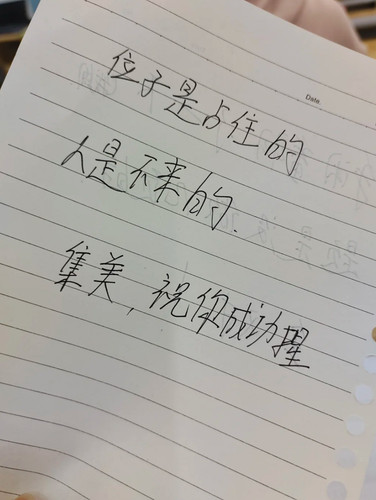 Date
位子是占住的
人是不来的.
集美,祝你成功捏